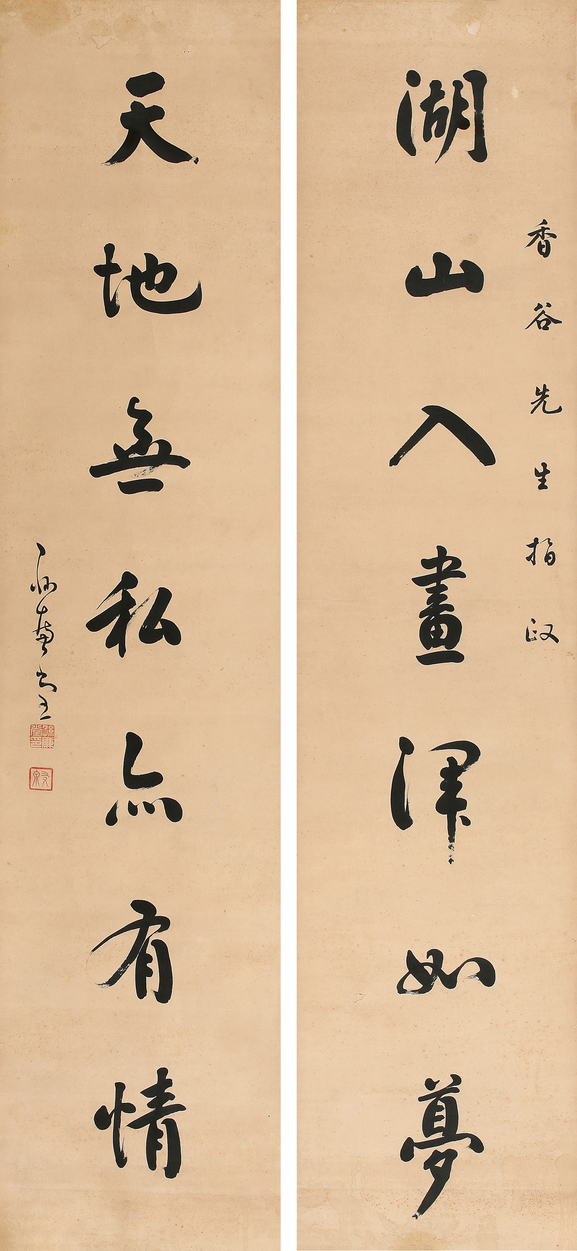 香谷先生指政
湖山入畫渾如夢
天地無私亦有情